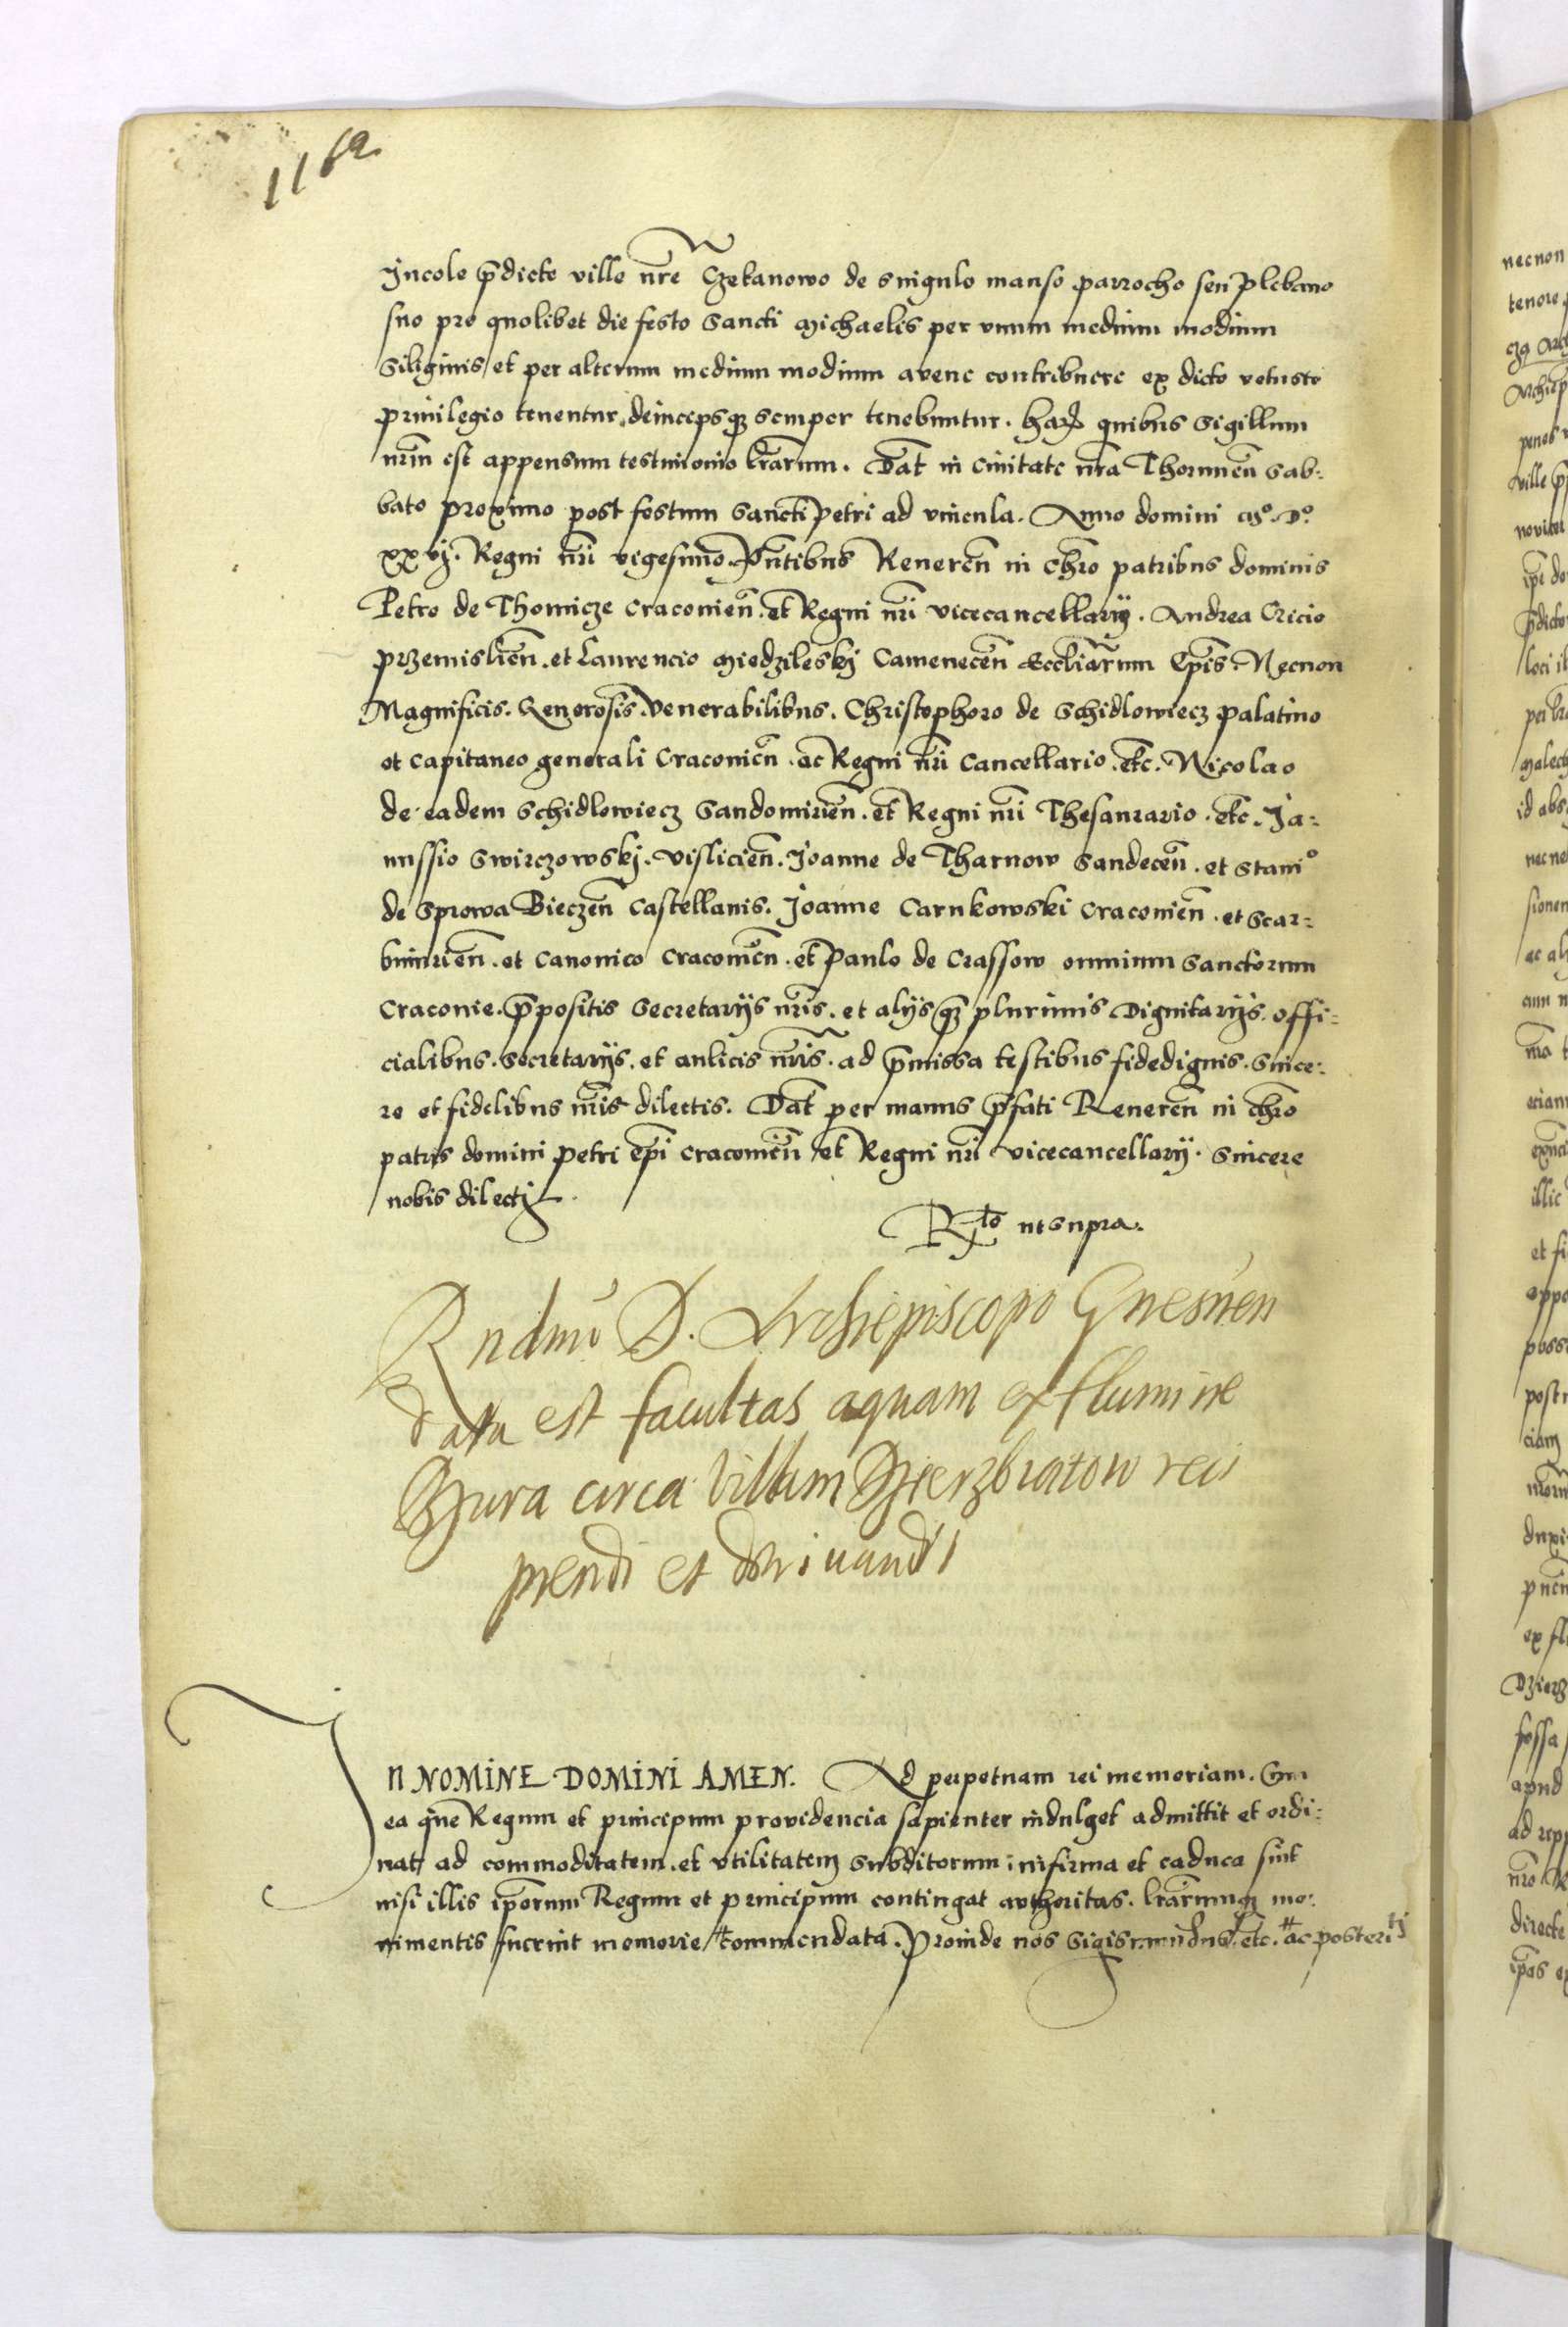 1162
Jncole p̄dicte ville nr̃e Czekanowo de singulo manso parrocho seu plebano
suo pro quolibet die festo sancti michaelis per vnum medium modium
siliginis / et per alterum medium modium avene contribuere ex dicto vetusto
priuilegio tenentur, deincepsqʒ semper tenebuntur. harꝝ quibus sigillum
nrm̄ est appensum testimonio lr̄arum. Dat̄ in ciuitate nr̄a Thorunen̄ sab:
bato proximo post festum sancti petri ad vincula. Anno domini Mº. Dº.
xxvj. Regni nr̄i vigesimo. Pn̄tibus Reueren̄ in chr̄o patribus dominis
Petro de Thomicze Cracouien̄. et Regni nr̄i vicecancellario. Andrea Cricio
przemislien̄. et Laurencio Miedzileskj Camenecen̄ Eccl̄iarum Ep̄is. Necnon
Magnificis. Generosis. Venerabilibus. Christophoro de Schidlowiecz palatino
et Capitaneo generali Cracouien̄. ac Regni nr̄i Cancellario. etc. Nicolao
de eadem Schidlowiecz Sandomirien̄. et Regni nr̄i Thesaurario. etc. Ja:
nussio Swirczowskj. vislicien̄. Joanne de Tharnow Sandecen̄. et Staniº
de Sprowa Bieczen̄ Castellanis. Joanne Carnkowski Cracouien̄. et Scar:
bimirien̄. et Canonico Cracouien̄. et Paulo de Crassow omnium Sanctorum
Cracouie. p̄positis Secretarijs nr̄is. et alijsqʒ plurimis Dignitarijs. offi:
cialibus. secretarijs. et aulicis nr̄is. ad p̄missa testibus fidedignis. Since:
re et fidelibus nr̄is dilectis. Dat̄ per manus p̄fati Reueren̄ in chr̄o
patris domini petri ep̄i Cracouien̄ et Regni nr̄i vicecancellarij. Sincere
nobis dilecti.
R̄to ut supra.
Rndm̄o D. Archiepiscopo Gnesnen
data est facultas aquam ex flumine
Bzura circa villam Dzierzbiatow reci
piendi et deriuandi
Jn NOMINE DOMINI AMEN. Ad perpetuam rei memoriam. Cum
ea que Regum et principum providencia sapienter indulget admittit et ordi:
nat ad commoditatem. et vtilitatem subditorum: infirma et caduca sint
nisi illis ip̄orum Regum et principum contingat authoritas. lr̄arumqʒ mo:
nimentis fuerint memorie # commendata. Proinde nos Sigismundus. etc. # ac posteritj